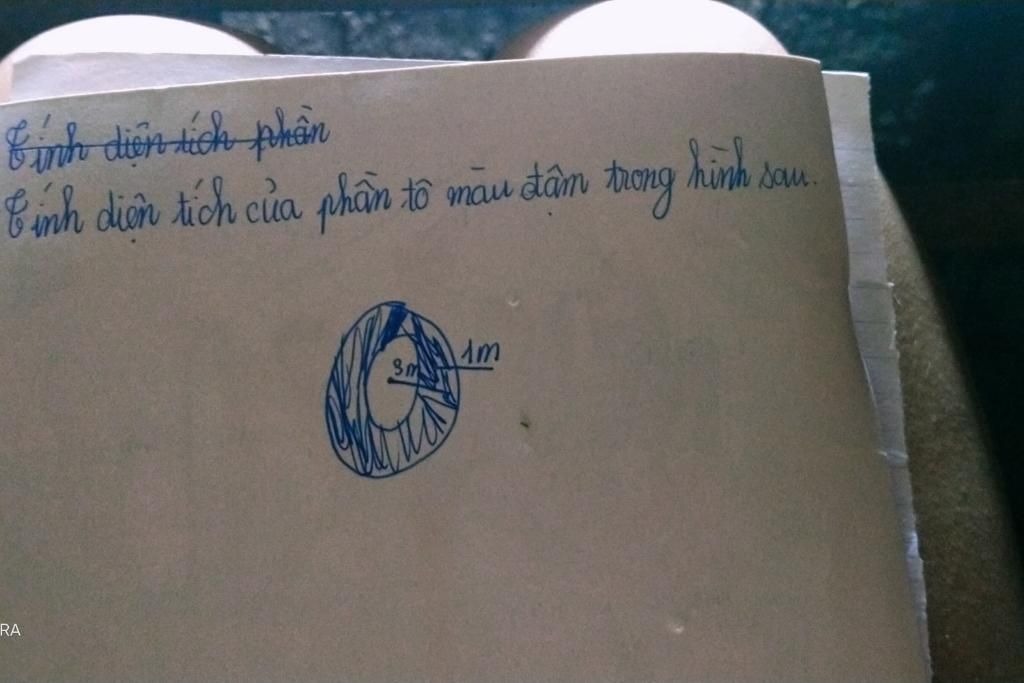 Tính diện tích phần
Tính diện tích của phần tô màu đậm trong hình sau.
1m
3m
RA